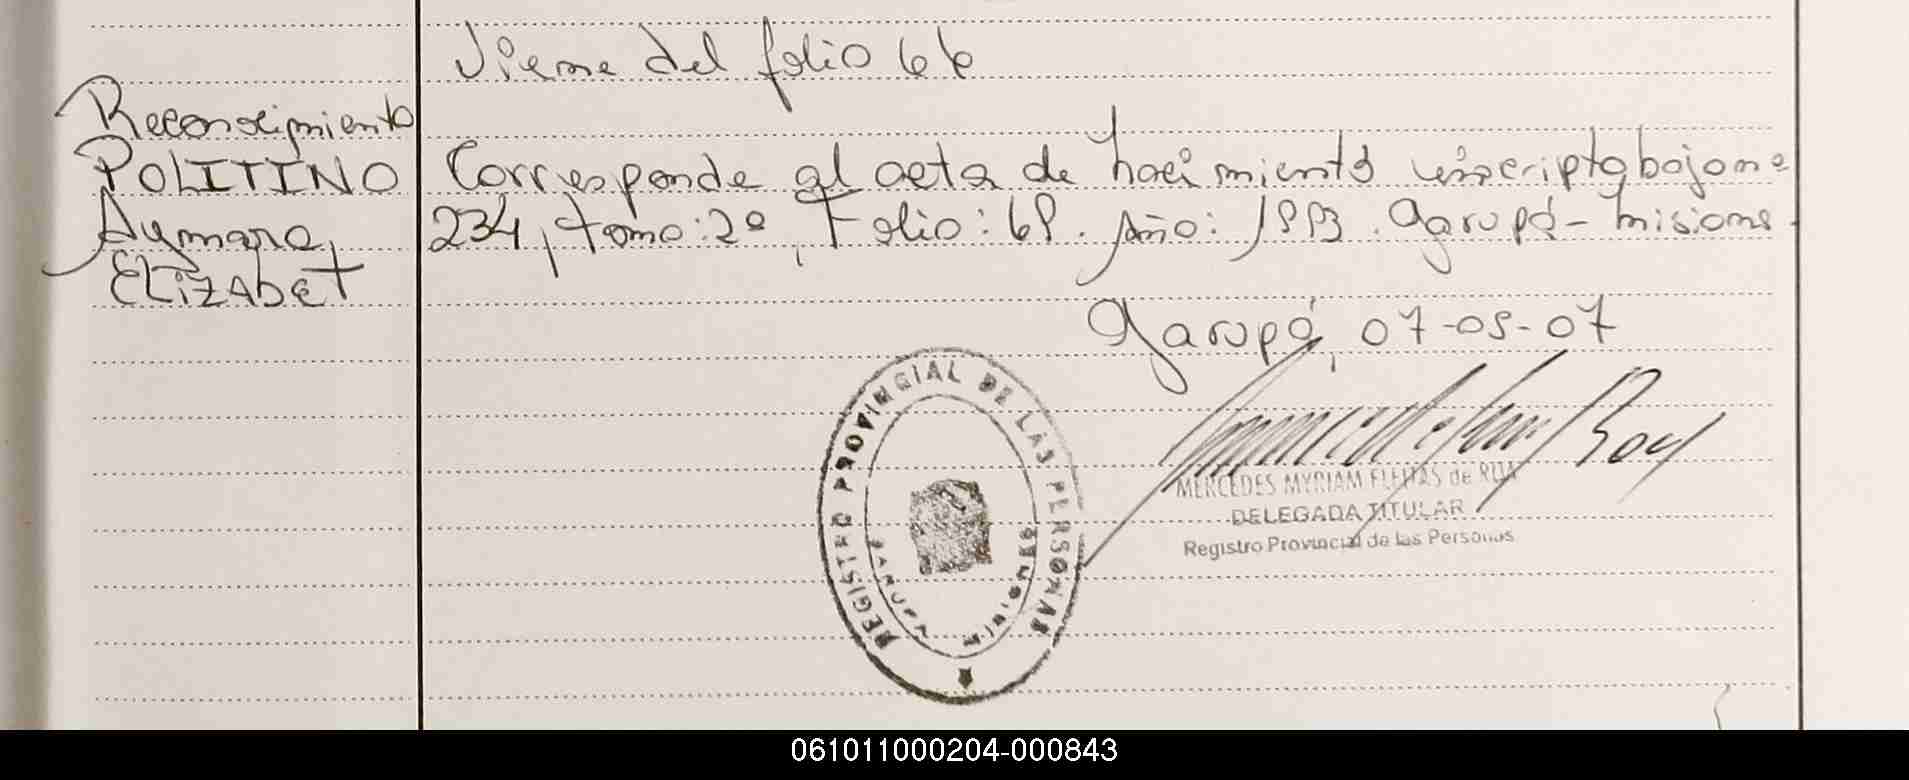 Viene del folio 66
Reconocimiento
POLITINO
Aymara,
ELIZABET
Corresponde al acta de nacimiento inscripta bajo nº
234, tomo: 2º, Folio: 69. Año: 1993. Garupá - misiones.
Garupá, 07-05-07
REGISTRO PROVINCIAL DE LAS PERSONAS
GARUPA MISIONES
MERCEDES MYRIAM FLEITAS de
DELEGADA TITULAR
Registro Provincial de las Personas
061011000204-000843